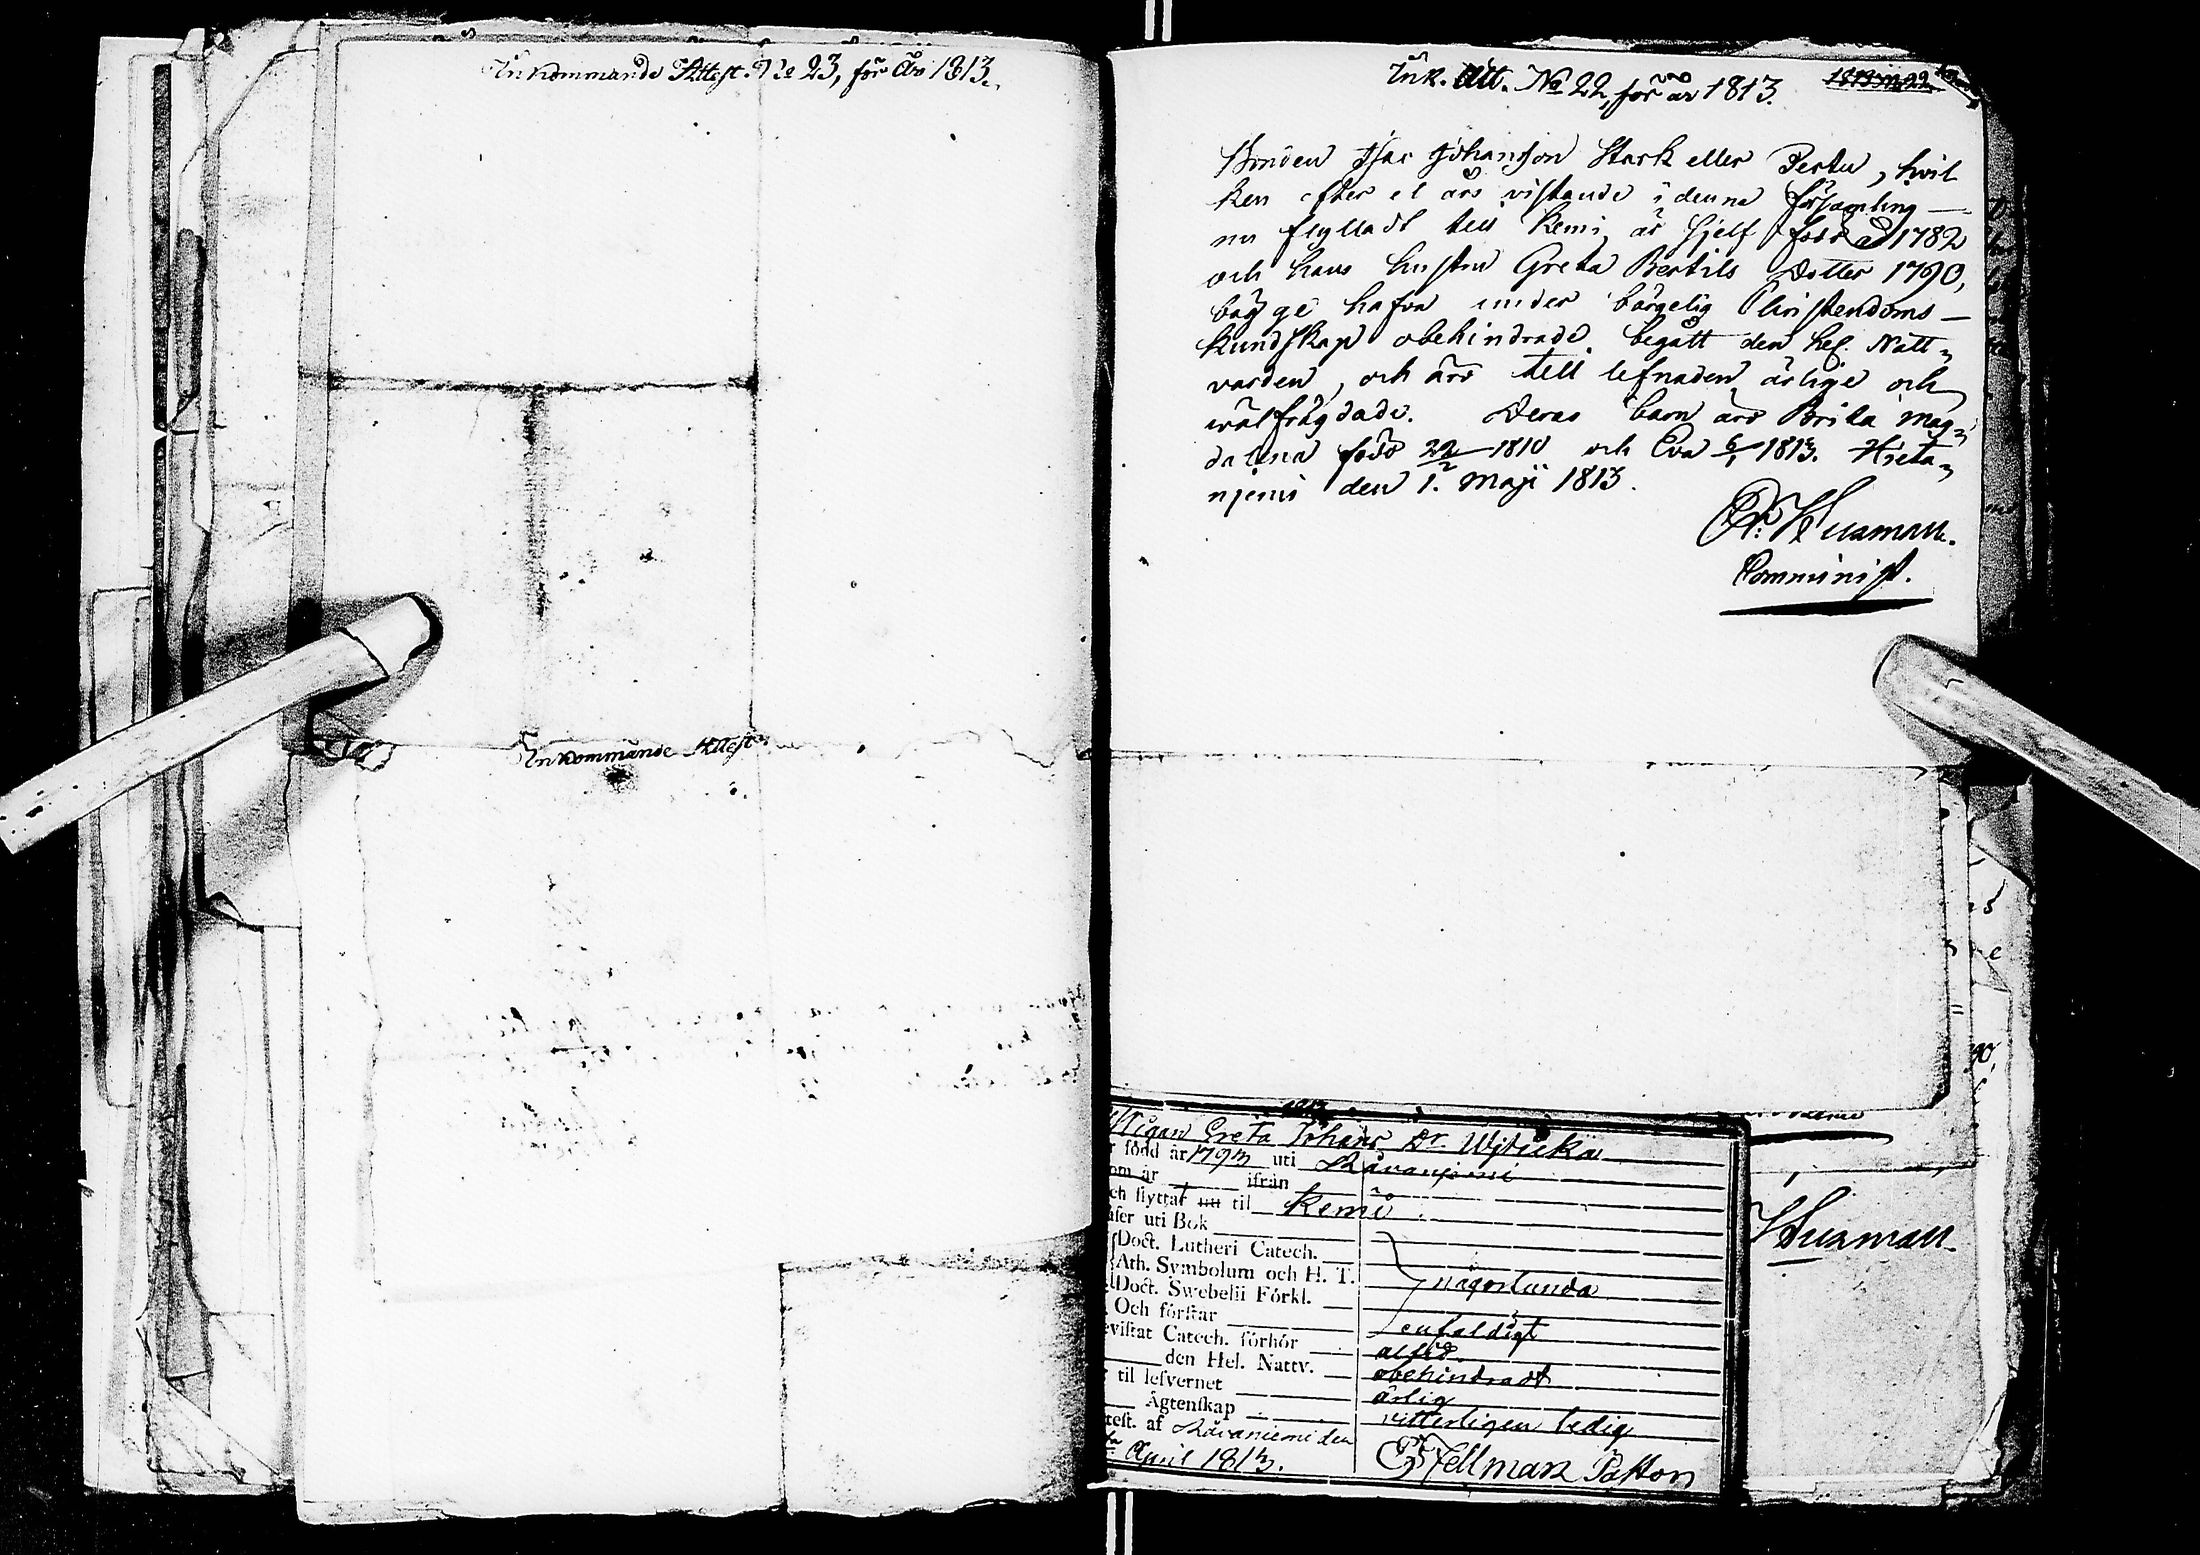 Inkommande Attest. No 23, för År 1813.
Inkommande Attest
Ink. Att. No 22, för år 1813.
Bonden Isac Johansson Stark eller Pertu, hvil
ken efter et års vistande i denna församling
nu flyttadt till Kemi, är sjelf född år 1782
och hans hustru Greta Bertils Dotter 1790,
bägge hafva under börgelig Christendoms
kundskap obehindrade begått den hel. Natt-
varden, och äro till lefnaden ärlige och
wälfrägdade. Deras barn äro Brita Mag-
dalena född 22/2 1810 och Eva 6/1 1813. Hieta-
njemi den 1. Maji 1813.
Huaman.
Comminist.
Pigan Greta Johans Dr.
född år 1793 uti Råvanjemi
om år ifrån
ch flyttat til Kemi
äser uti Bok
Doct. Lutheri Catech.
Ath. Symbolum och H. T.
Doct. Swebelii Förkl.
någorlunda
Och förstår enfaldigt
evistat Catech. förhör altid
den Hel. Nattv. obehindradt
til lefvernet ärlig
Ägtenskap vitterligen ledig
test. af Råvaniemi den
April 1813.
Fellman Pastor
Huaman.